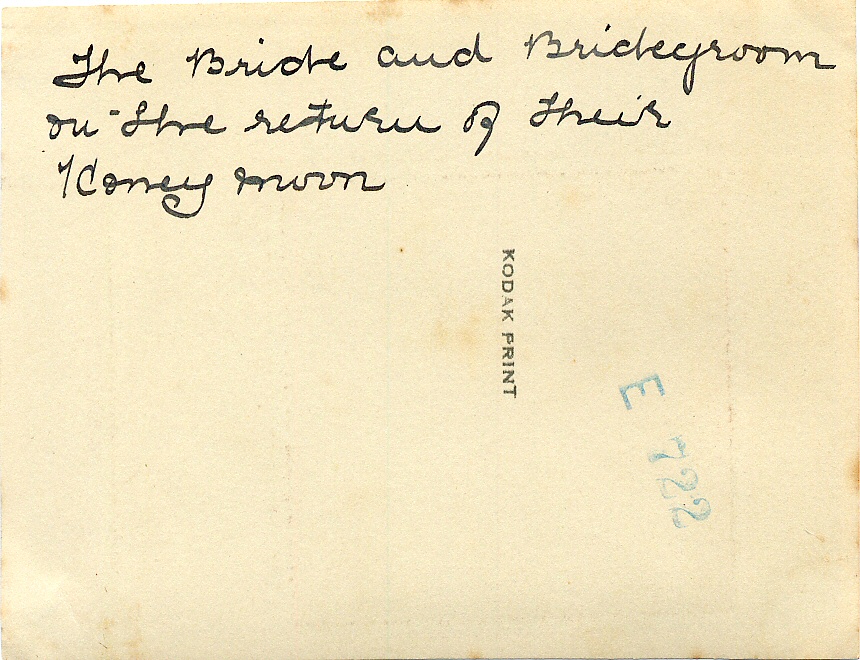 The Bride and Bridegroom
on the return of their
Honey moon
KODAK PRINT
E 722